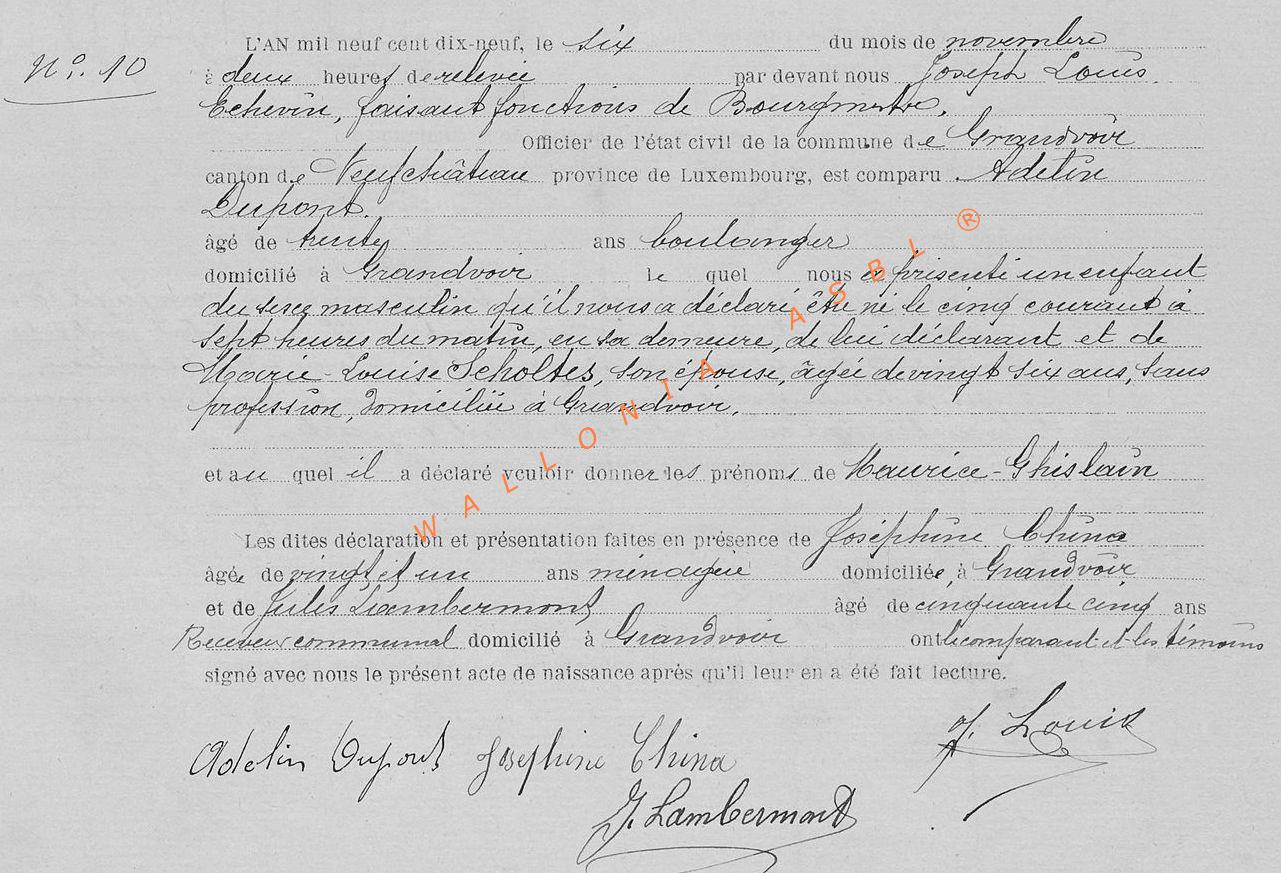 L'AN mil neuf cent dix-neuf, le six du mois de novembre
N°. 10
à deux heures de relevée par devant nous Joseph Louis
Echevin, faisant fonctions de Bourgmestre,
Officier de l'état civil de la commune de Grandvoir
canton de Neufchâteau province de Luxembourg, est comparu Adelin
Dupont.
âgé de trente ans boulanger
domicilié à Grandvoir le quel nous a présenté un enfant
du sexe masculin qu'il nous a déclaré être né le cinq courant à
sept heures du matin, en sa demeure, de lui déclarant et de
Marie-Louise Scholtes, son épouse, âgée de vingt six ans, sans
profession, domiciliée à Grandvoir.
et au quel il a déclaré vouloir donner les prénoms de Maurice-Ghislain
Les dites déclaration et présentation faites en présence de Joséphine China
âgée de vingt et un ans ménagère domiciliée à Grandvoir
et de Jules Lambermont âgé de cinquante cinq ans
Receveur communal domicilié à Grandvoir ont le comparant et les témoins
signé avec nous le présent acte de naissance après qu'il leur en a été fait lecture.
J. Louis
Adelin Dupont Josephine China
J. Lambermont
WALLONIA ASBL ®